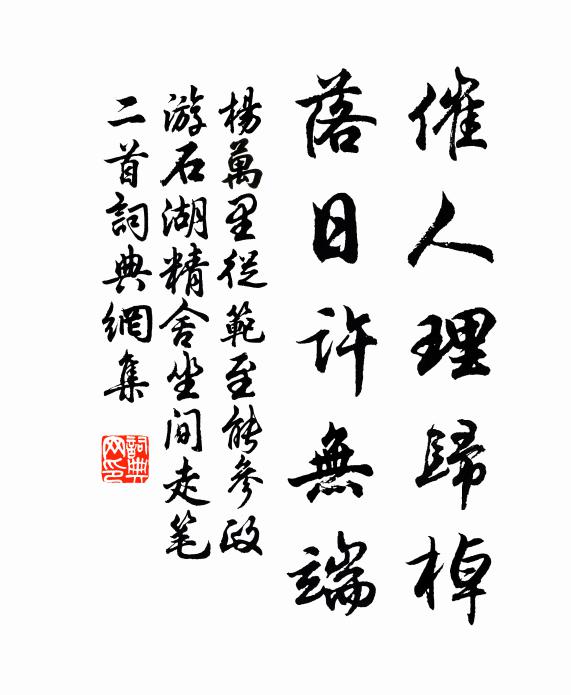 催人理歸棹
落日許無端
楊萬里從範至能參政
游石湖精舍坐间走笔
二首詞典網集
詞典网印